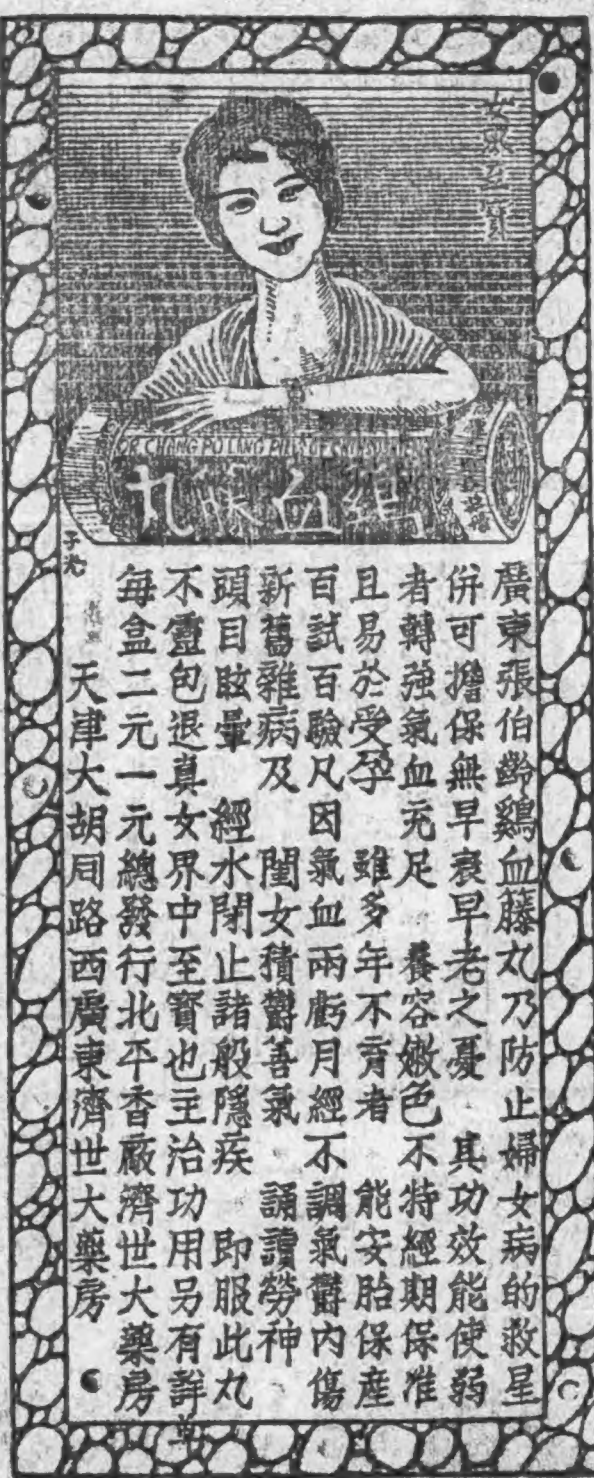 女界至寶
DR CHANG POLING PILL OF
鷄血藤丸
子光
廣東張伯齡鷄血藤丸乃防止婦女病的救星
併可擔保無早衰早老之憂 其功效能使弱
者轉強氣血充足 養容嫩色不特經期保准
且易於受孕 雖多年不育者 能安胎保產
百試百驗凡因氣血兩虧月經不調氣鬱內傷
新舊雜病及 閨女積鬱善氣 誦讀勞神
頭目眩暈 經水閉止諸般隱疾 即服此丸
不靈包退真女界中至寶也主治功用另有詳單
每盒二元一元總發行北平香廠濟世大藥房
天津大胡同路西廣東濟世大藥房